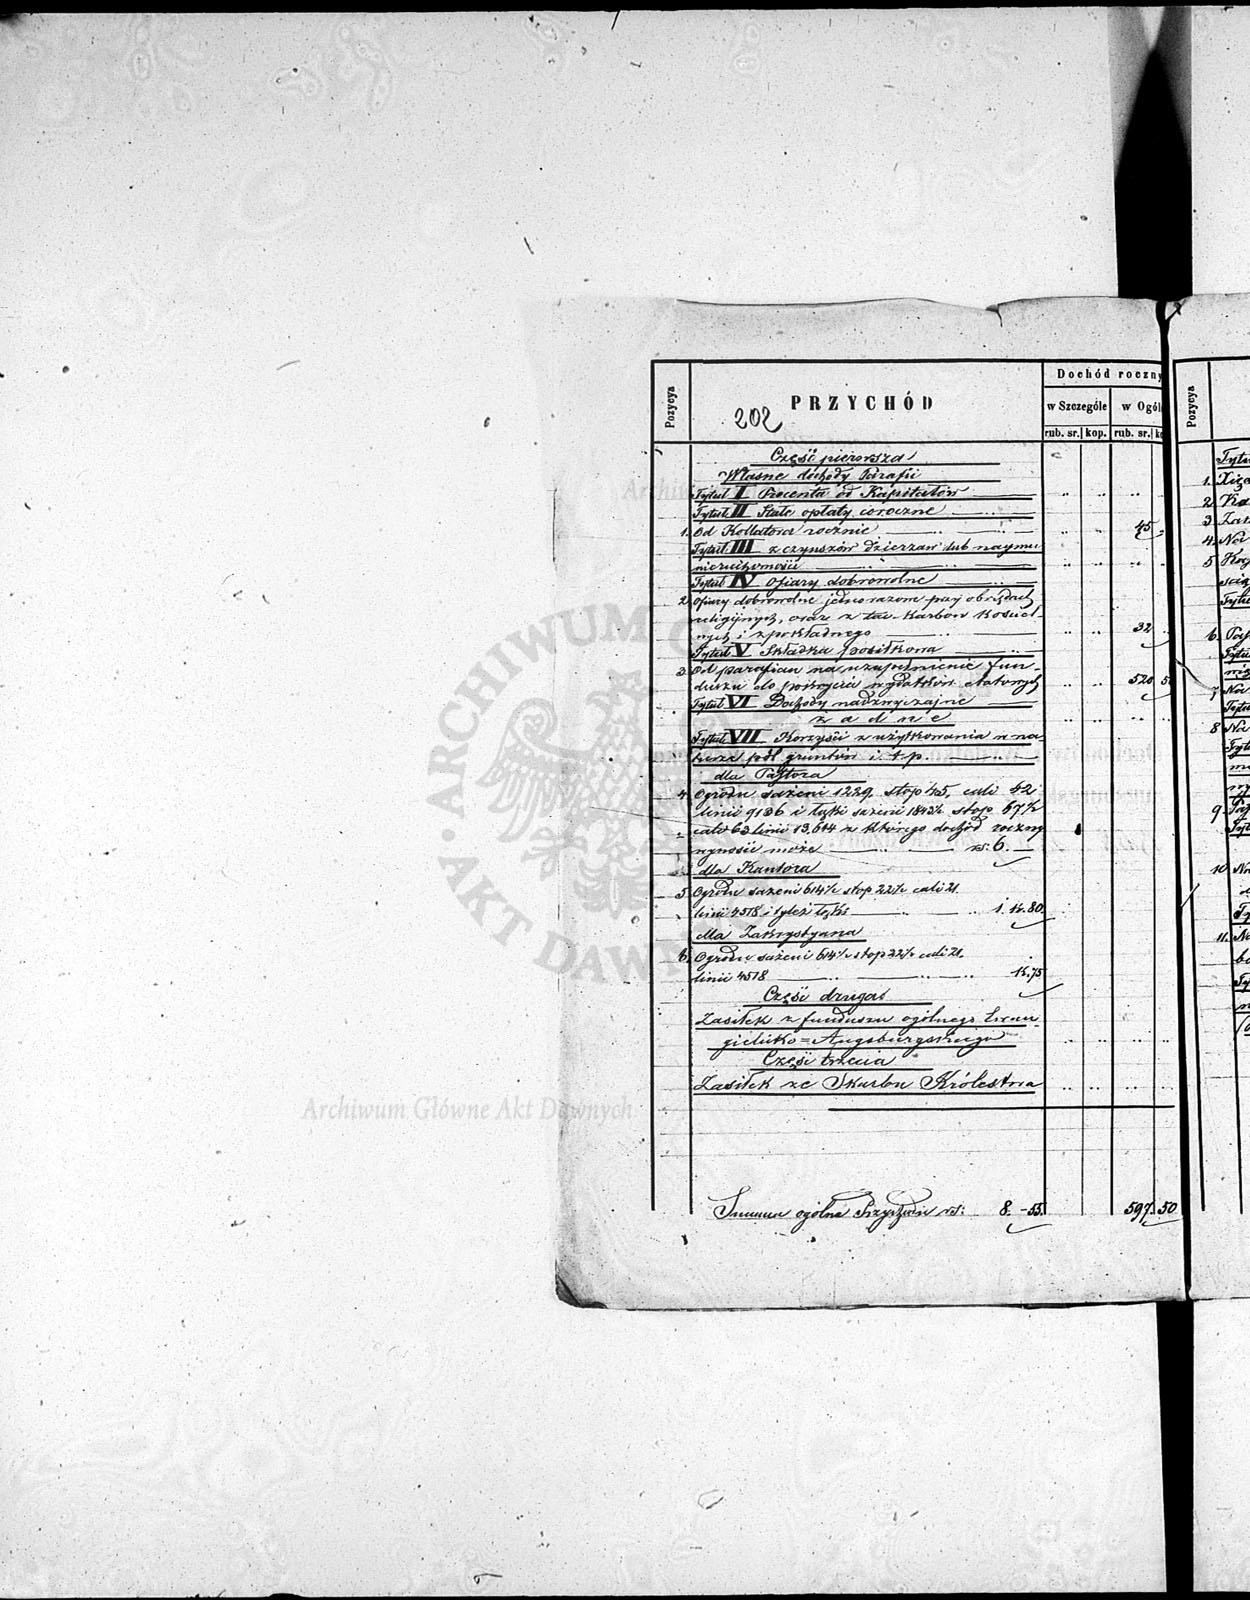 Pozycya
PRZYCHÓD
202
Dochód roczny
w Szczególe
w Ogól
rub. sr. kop. rub. sr.
Część pierwsza
Własne dochody Parafii
Tytuł I Procenta od Kapitałów
Tytuł II Stałe opłaty coroczne
1. Od Kollatora rocznie 45
Tytuł III z czynszów dzierżaw lub najmu
nieruchomości
Tytuł IV Ofiary dobrowolne
2 Ofiary dobrowolne jednorazowe przy obrzędach
religijnych, oraz z tac Karbon Kościel-
nych i z pokładnego 32
Tytuł V Składka posiłkowa
3. Od parafian na uzupełnienie fun-
duszu do pokrycia wydatków etatowych 520 50
Tytuł VI Dochody nadzwyczajne
żadne
Tytuł VII Korzyści z użytkowania w na-
turze pól gruntów i. t p.
dla Pastora
4. Ogrodu sążeni 1229, stop 45, cali 42
linii 9136 i łąki sążeni 1843½ stop 67½
cali 63 linii 13,644 z którego dochód roczny
wynosić może rs. 6.
dla Kantora
5 Ogrodu sążeni 614½ stop 22½ cali 21
linii 4518 i tyleż łąki 1. k. 80.
dla Zakrystyana
6. Ogrodu sążeni 614½ stop 22½ cali 21.
linii 4518 k. 75
Część druga
Zasiłek z funduszu ogólnego Ewan-
gielicko=Augsburgskiego
Część trzecia
Zasiłek ze Skarbu Królestwa
Summa ogólna Przychodu rs: 8.-55. 597.50
Pozycya
1.
2
3
4.
5
6.
7.
8
9.
10
11.
ARCHIWUM
AKT DAWN
Archiwum Główne Akt Dawnych